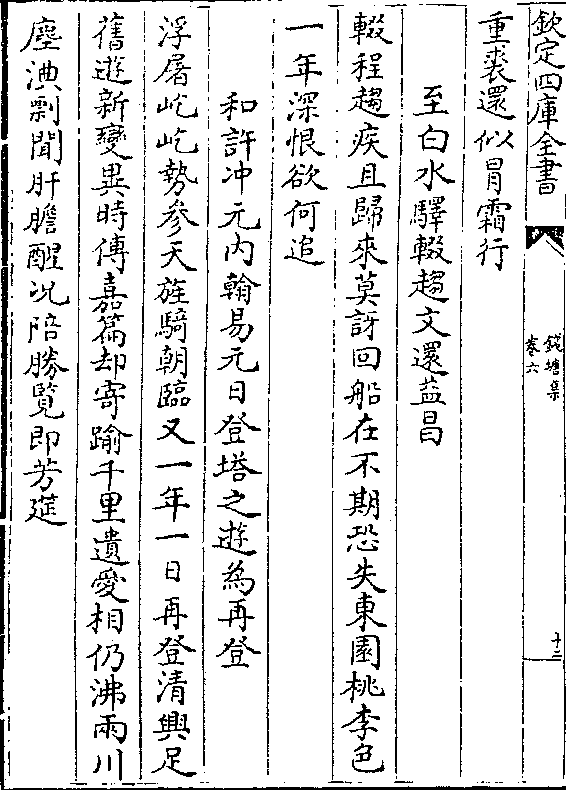 欽定四庫全書
錢塘集
卷六
十二
重裘還似冒霜行
至白水驛輟趨文還益昌
輟程趨疾且歸來莫訝回船在不期恐失東園桃李色
一年深恨欲何追
和許冲元內翰易元日登塔之遊為再登
浮屠屹屹勢参天旌騎朝臨又一年一日再登清興足
舊遊新變異時傳嘉篇却寄踰千里遺愛相仍沸兩川
塵淟剽聞肝膽醒况陪勝覽即芳筵